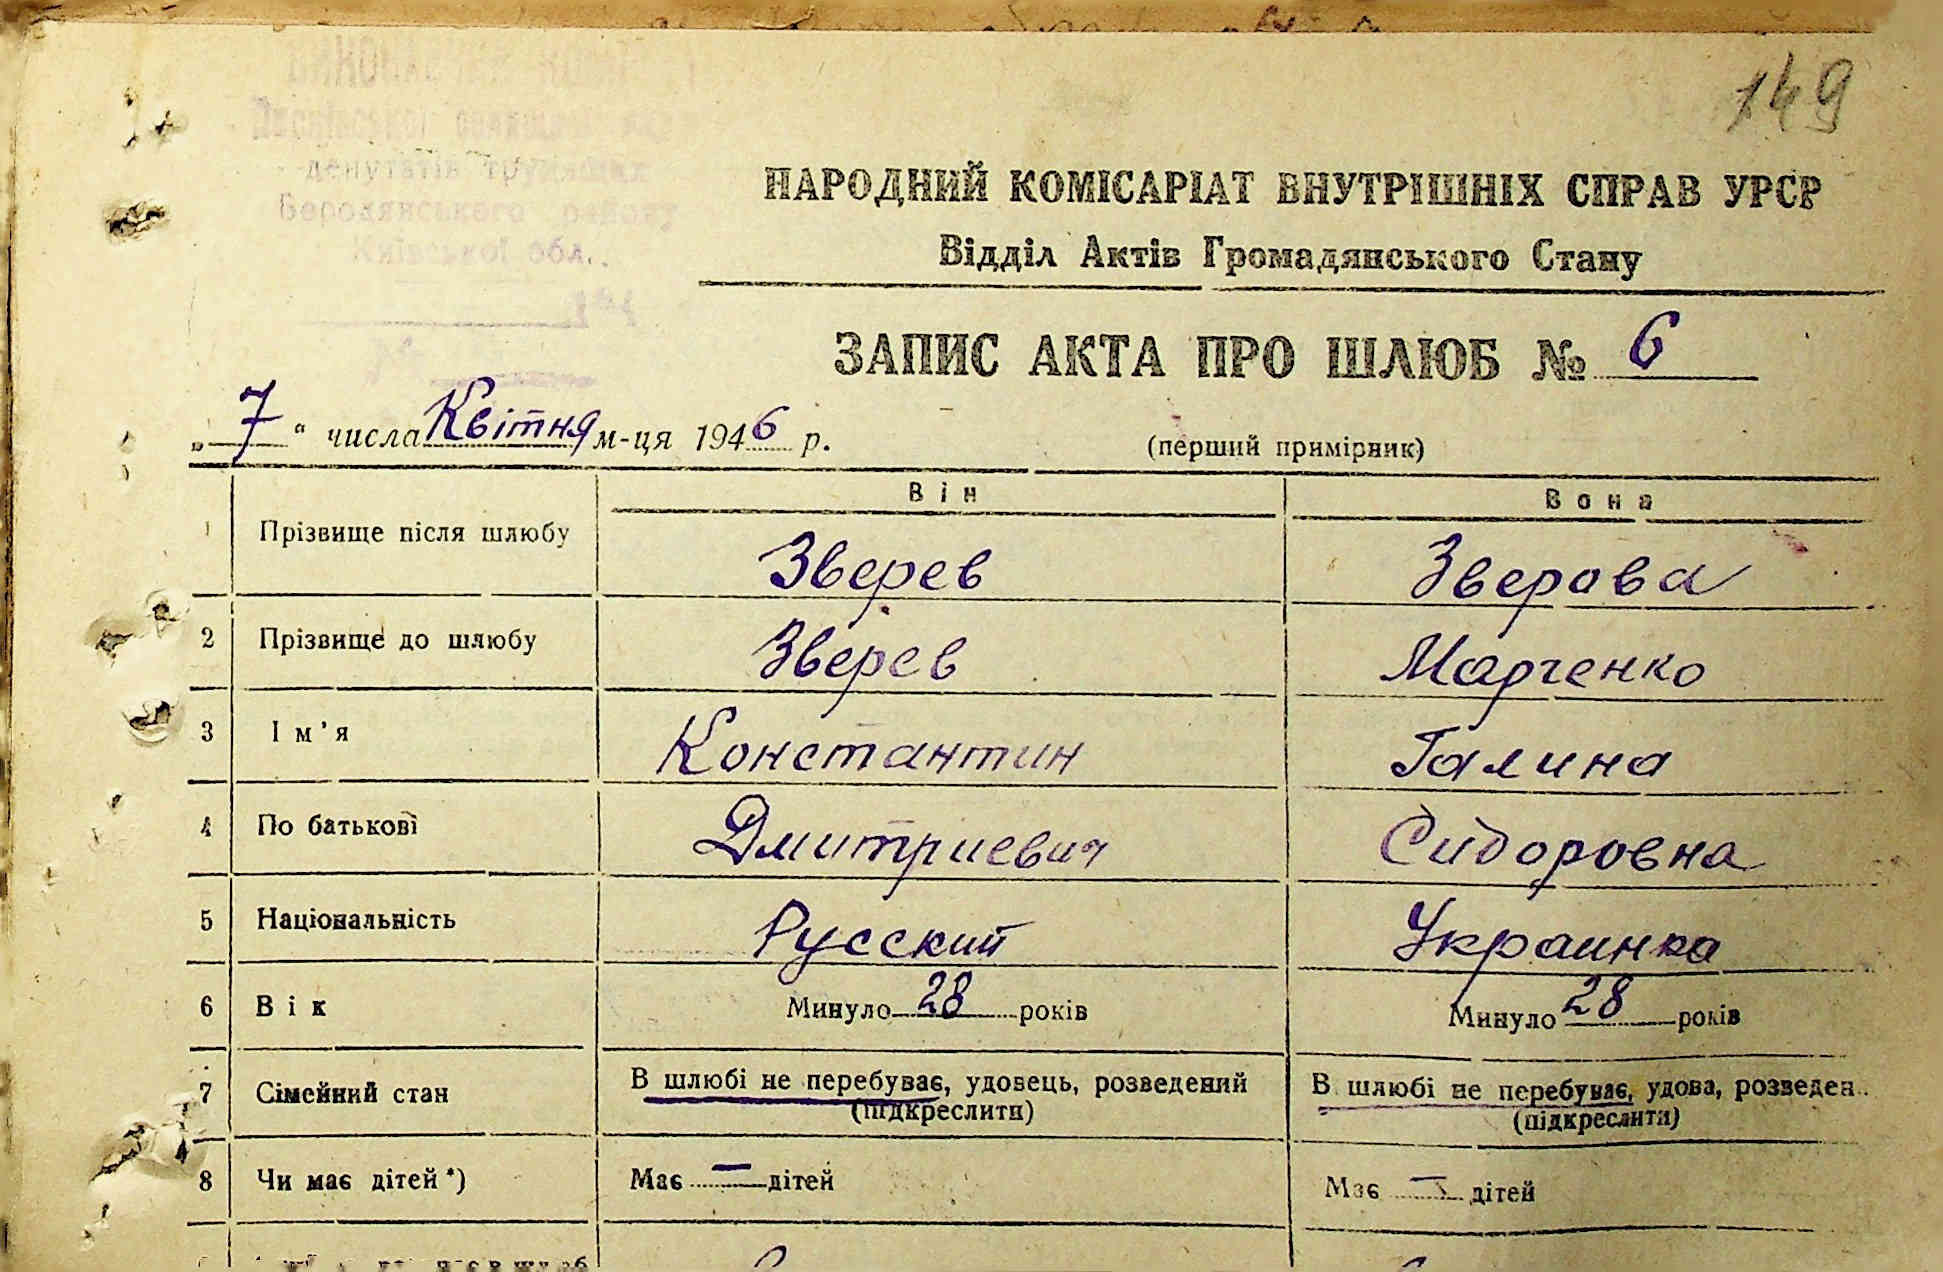 149
ВИКОНАВЧИЙ КОМІ
депутатів трудящих
Бородянського району
Київської обл.
НАРОДНИЙ КОМІСАРІАТ ВНУТРІШНІХ СПРАВ УРСР
Відділ Актів Громадянського Стану
ЗАПИС АКТА ПРО ШЛЮБ № 6
„ 7 “ числа Квітня м-ця 1946 р.
(перший примірник)
Він Вона
1 Прізвище після шлюбу Зверев Зверова
2 Прізвище до шлюбу Зверев Марченко
3 Ім’я Константин Галина
4 По батькові Дмитриевич Сидоровна
5 Національність Русский Украинка
6 Вік Минуло 28 років Минуло 28 років
7 Сімейний стан В шлюбі не перебуває, удовець, розведений В шлюбі не перебуває, удова, розведен
(підкреслити) (підкреслити)
8 Чи має дітей*) Має — дітей Має — дітей